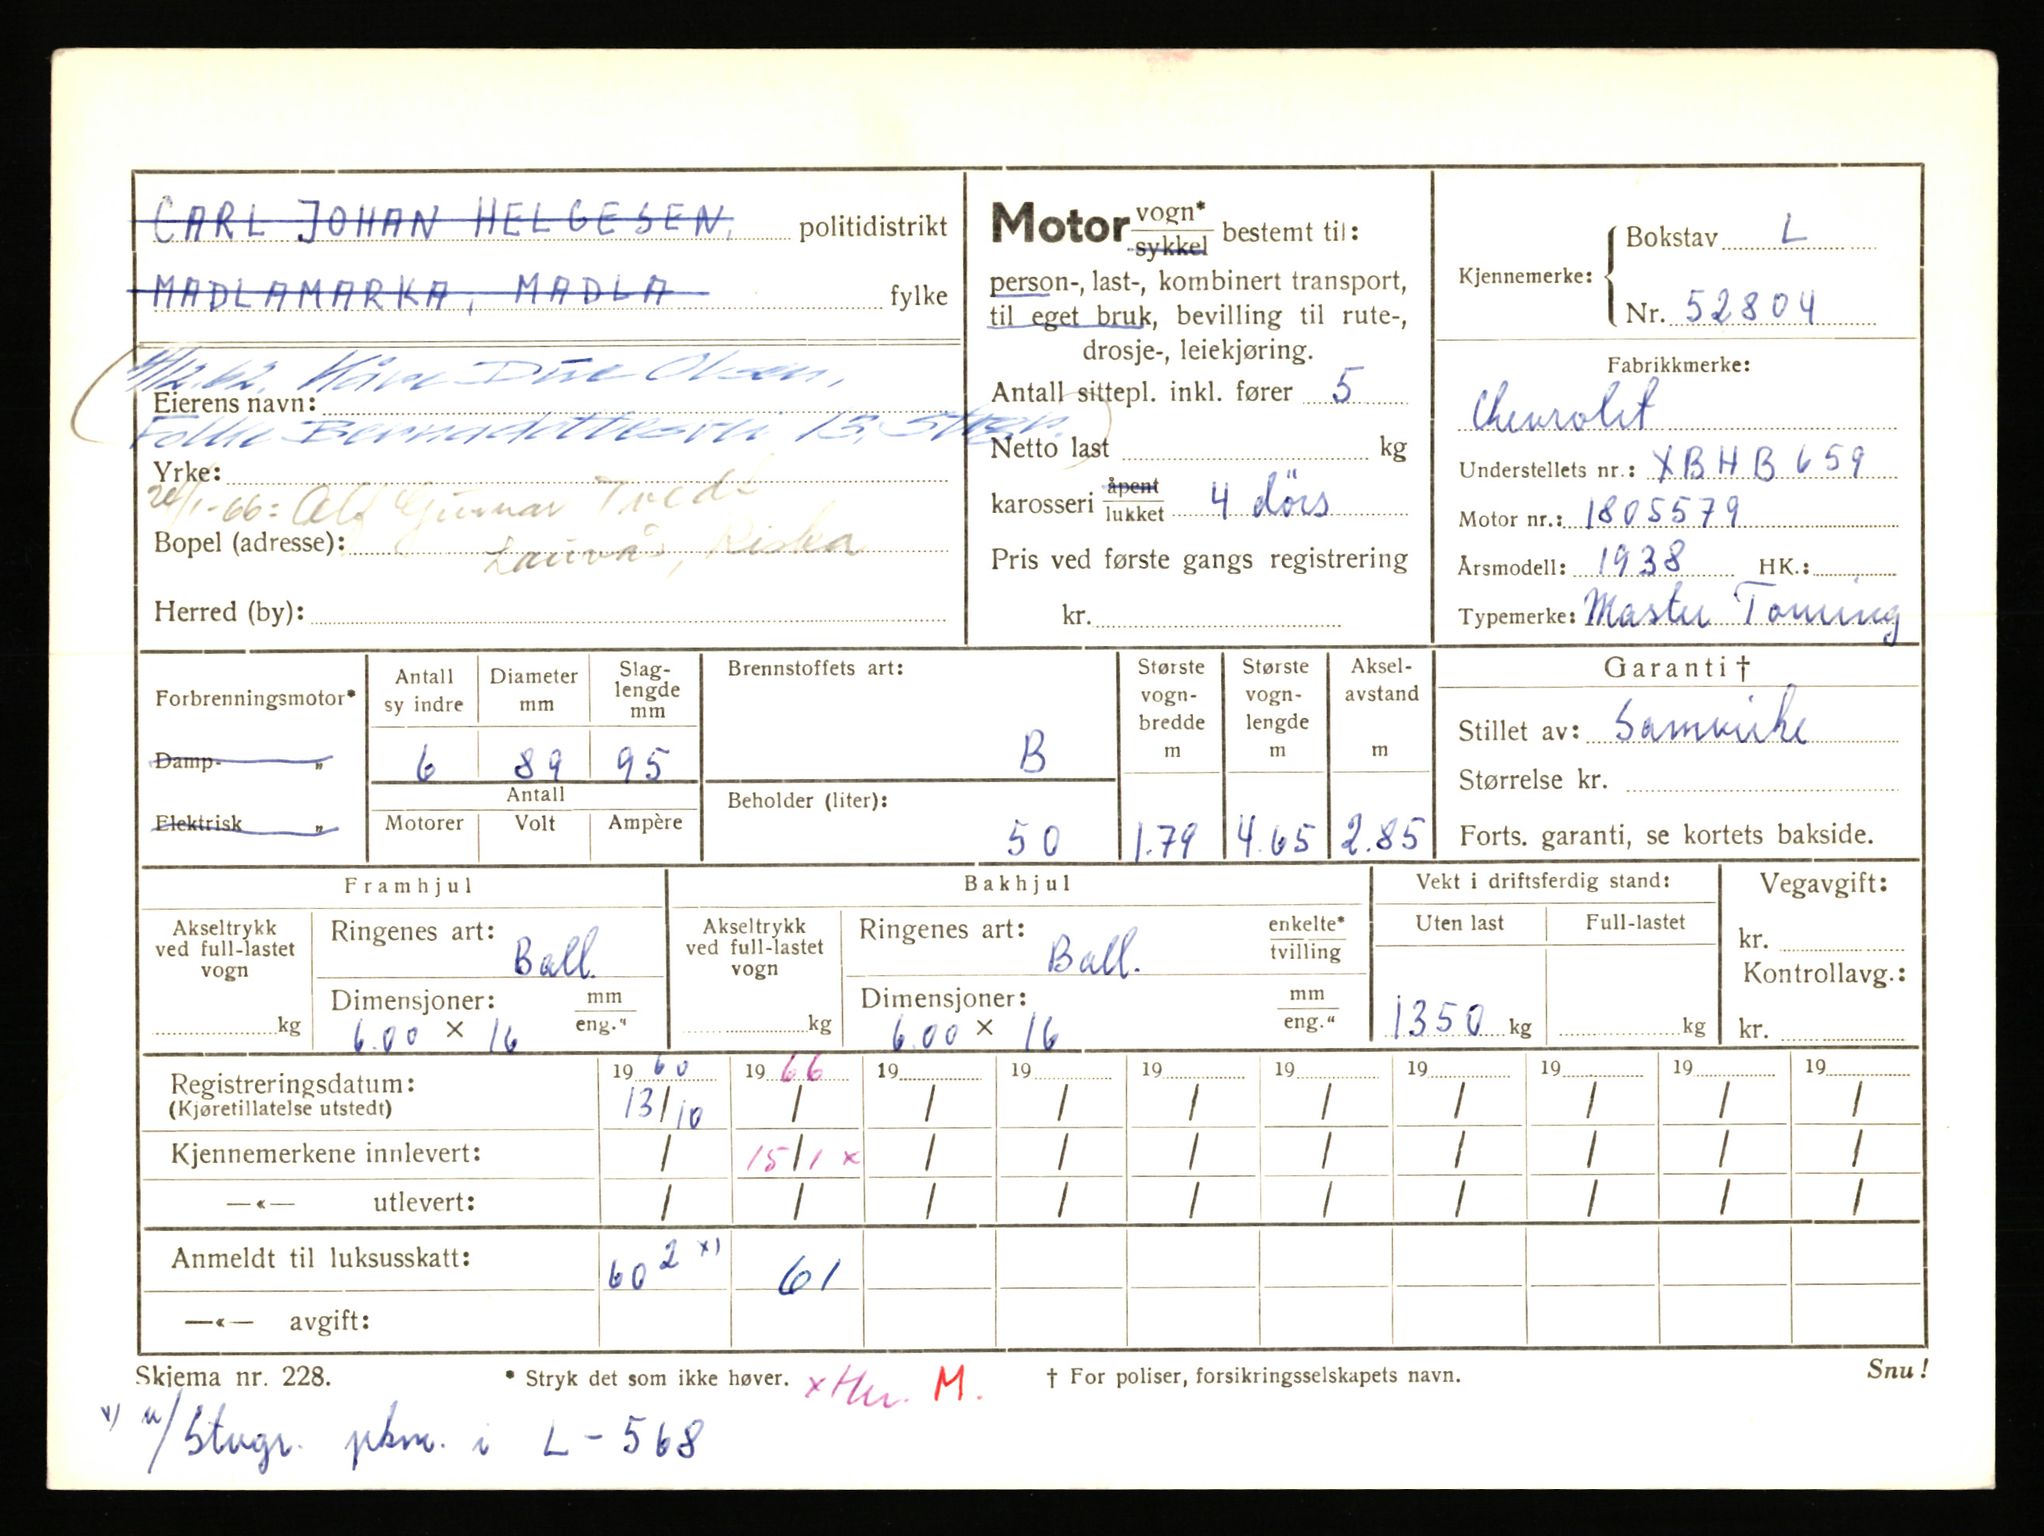 CARL JOHAN HELGESEN, politidistrikt
MADLAMARKA, MADLA fylke
/12.62. Kåre Due Olsen,
Eierens navn:
Folke Bernadottesvei 13, Stvgr.
Yrke:
24/1-66: Alf Gunnar Tvedt
Bopel (adresse): Lauvås, Riska
Herred (by):
Motor vogn* sykkel bestemt til:
person-, last-, kombinert transport,
til eget bruk, bevilling til rute-,
drosje-, leiekjøring.
Antall sittepl. inkl. fører 5
Netto last kg
karosseri åpent lukket 4 dörs
Pris ved første gangs registrering
kr.
Kjennemerke: Bokstav L
Nr. 52804
Fabrikkmerke:
Chevrolet
Understellets nr.: XBHB659
Motor nr.: 1805579
Årsmodell: 1938 HK.:
Typemerke: Master Touring
Forbrenningsmotor*
Damp- „
Elektrisk „
Antall sy indre
Diameter mm
Slag-lengde mm
6 89 95
Antall
Motorer Volt Ampère
Brennstoffets art:
B
Beholder (liter):
50
Største vogn-bredde m
1.79
Største vogn-lengde m
4.65
Aksel-avstand m
2.85
Garanti †
Stillet av: Samvirke
Størrelse kr.
Forts. garanti, se kortets bakside.
Framhjul
Akseltrykk ved full-lastet vogn
kg
Ringenes art: Ball.
Dimensjoner: mm eng."
6.00 × 16
Bakhjul
Akseltrykk ved full-lastet vogn
kg
Ringenes art: Ball. enkelte* tvilling
Dimensjoner: mm eng."
6.00 × 16
Vekt i driftsferdig stand:
Uten last Full-lastet
1350 kg kg
Vegavgift:
kr.
Kontrollavg.:
kr.
19 60 19 66 19 19 19 19 19 19 19 19
Registreringsdatum: 13/10 / / / / / / / / /
(Kjøretillatelse utstedt)
Kjennemerkene innlevert: / 15/1 x / / / / / / / /
—«— utlevert: / / / / / / / / / /
Anmeldt til luksusskatt: 60 2 x) 61
—«— avgift:
Skjema nr. 228. * Stryk det som ikke høver. x M. † For poliser, forsikringsselskapets navn. Snu!
Stvgr. pkm. i L-568